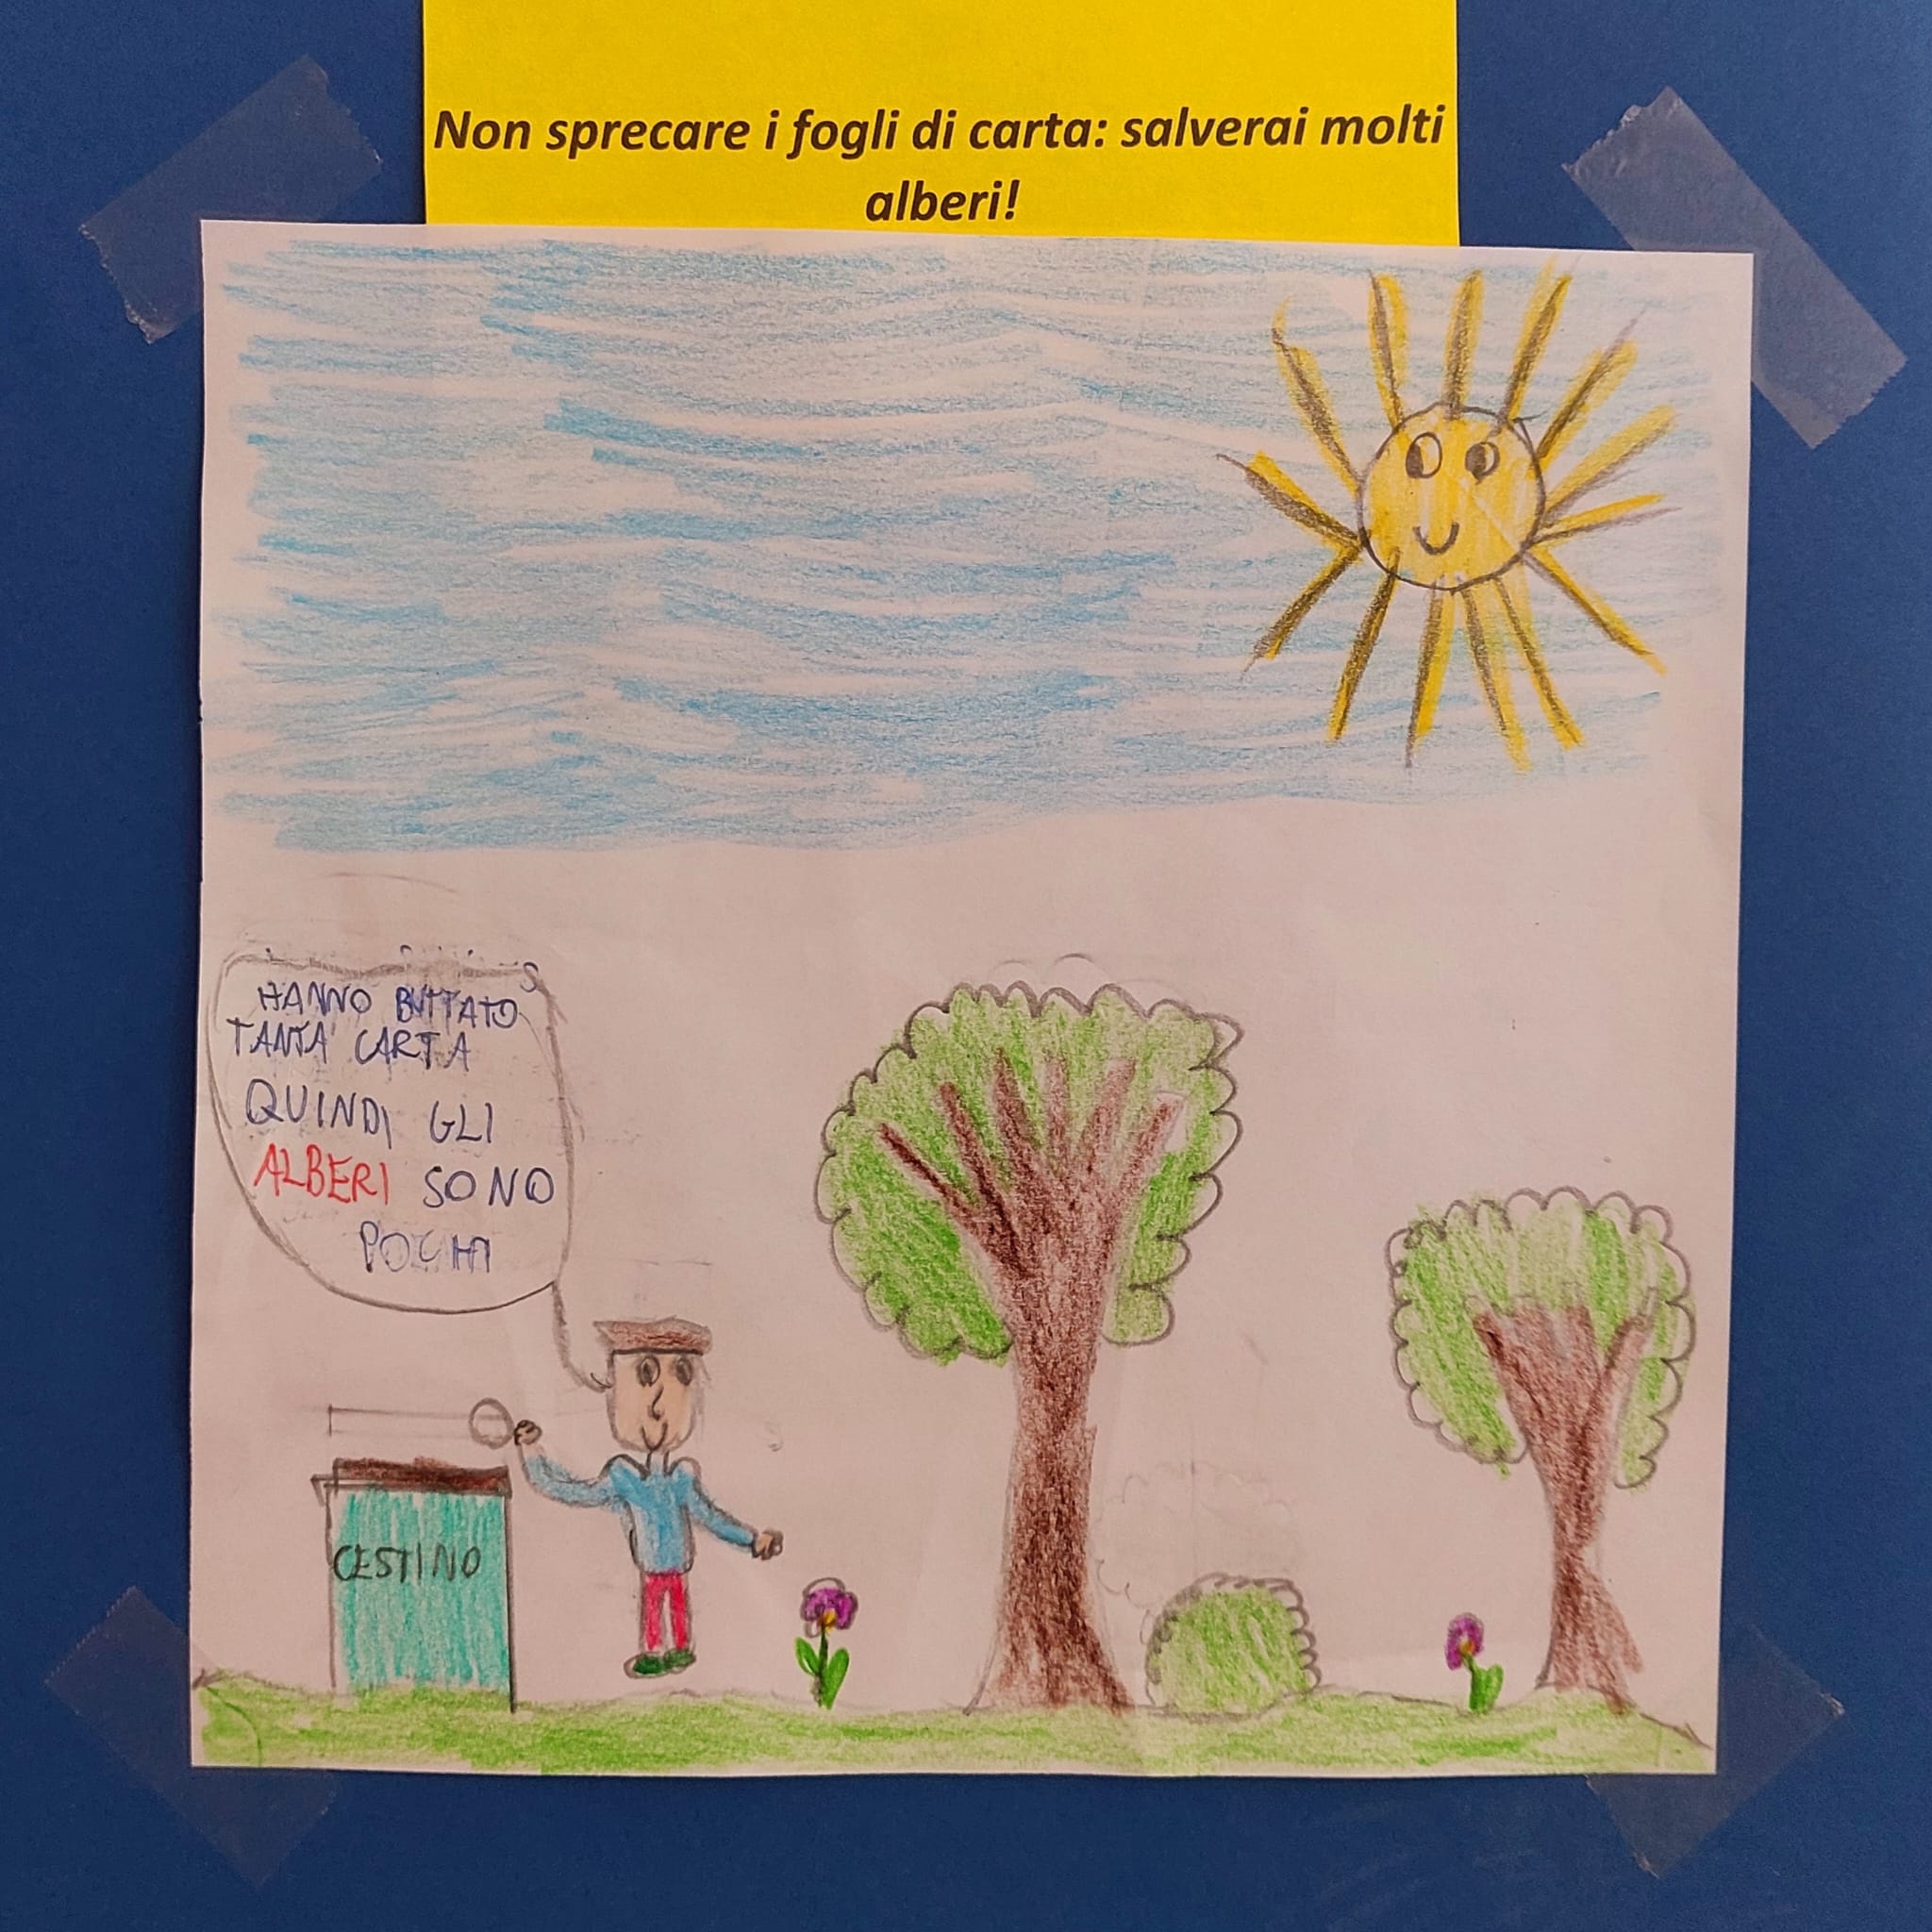 Non sprecare i fogli di carta: salverai molti
alberi!
HANNO BUTTATO
TANTA CARTA
QUINDI GLI
ALBERI SONO
POCHI
CESTINO